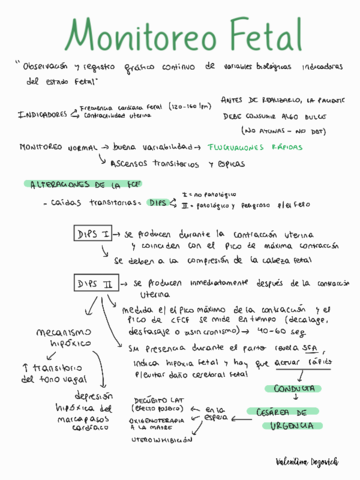 Monitoreo Fetal
"Observación y registro gráfico continuo de variables biológicas indicadoras
del estado fetal"
INDICADORES
Frecuencia cardiaca fetal (120-160/m)
Contractilidad uterina
ANTES DE REALIZARLO, LA PACIENTE
DEBE CONSUMIR ALGO DULCE
(NO AYUNAS - NO DBT)
MONITOREO NORMAL → buena variabilidad → FLUCTUACIONES RÁPIDAS
ASCENSOS TRANSITORIOS Y ESPICAS
ALTERACIONES DE LA FCF
- caídas transitorias = DIPS
I = no patológico
II = patológico y peligroso p/el feto
DIPS I → se producen durante la contracción uterina
y coinciden con el pico de máxima contracción
se deben a la compresión de la cabeza fetal
DIPS II → se producen inmediatamente después de la contracción
uterina
medida e/el pico máximo de la contracción y el
pico de cFCF se mide en tiempo (decalage,
desfasaje o asincronismo) → 40-60 seg
su presencia durante el parto revela SFA,
indica hipoxia fetal y hay que actuar rápido
p/evitar daño cerebral fetal
mecanismo
hipóxico
↑ transitorio
del tono vagal
depresión
hipóxica del
marcapasos
cardiaco
CONDUCTA
CESÁREA DE
URGENCIA
en la
espera
DECÚBITO LAT
(EFECTO POSEIRO)
OXIGENOTERAPIA
A LA MADRE
UTEROINHIBICIÓN
Valentina Dogovich